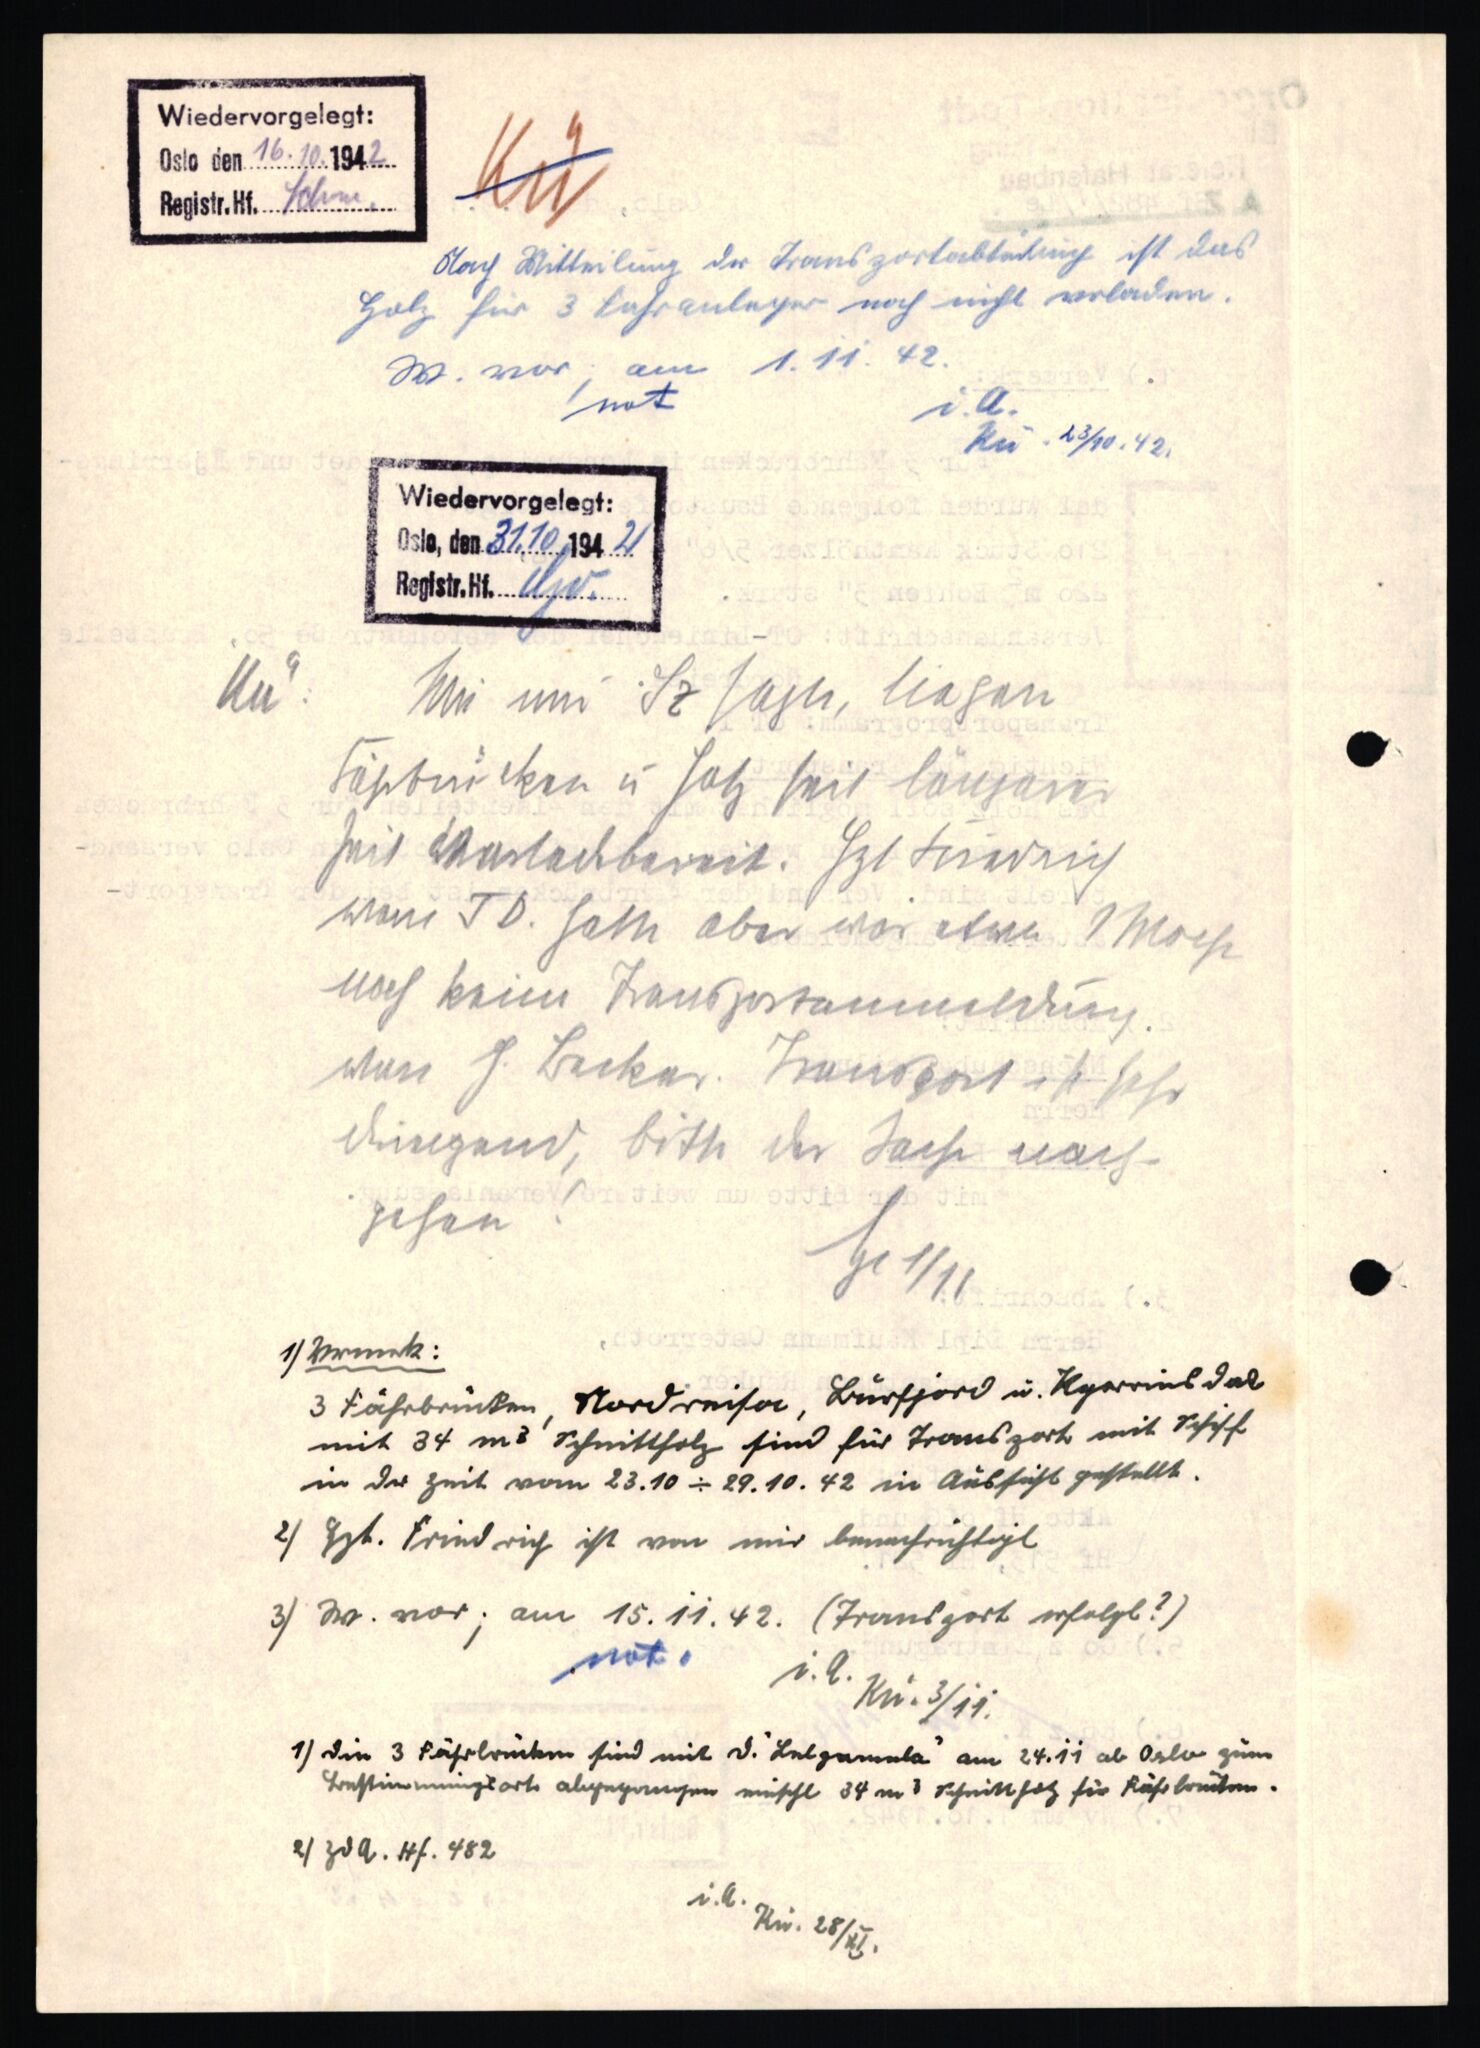 Wiedervorgelegt:
Oslo den 16.10. 1942
Registr. Hf.
Kü
Nach Mitteilung der Transportabteilung ist das
Holz für 3 Fähranleger noch nicht verladen.
W. vor; am 1.11.42.
not
i.A.
Kü. 23/10.42.
Wiedervorgelegt:
Oslo, den 31.10. 1942
Registr. Hf.
Kü:
Wie mir Sz sagte, liegen
Fährbrücken u Holz seit längerer
Zeit verladebereit. Hzl Friedrich
vom T D. hatte aber vor etwa 1 Woche
noch keine Transportanmeldung
von H. Becker. Transport ist sehr
dringend, bitte der Sache nach-
gehen!
1/11
1) Vermerk:
3 Fährbrücken, Nordreisa, Burfjord u. Kjerringdal
mit 34 m³ Schnittholz sind für Transport mit Schiff
in der Zeit vom 23.10 ÷ 29.10.42 in Aussicht gestellt.
2) Hzt. Friedrich ist von mir benachrichtigt
3) W. vor; am 15.11.42. (Transport erfolgt?)
not.
i.A.
Kü. 3/11.
1) die 3 Fährbrücken sind mit D. "Lalganula" am 24.11 ab Oslo zum
Bestimmungsort abgegangen einschl 34 m³ Schnittholz für Fährbrücken.
2) ZdA. Hf. 482
i.A.
Kü. 28/XI.